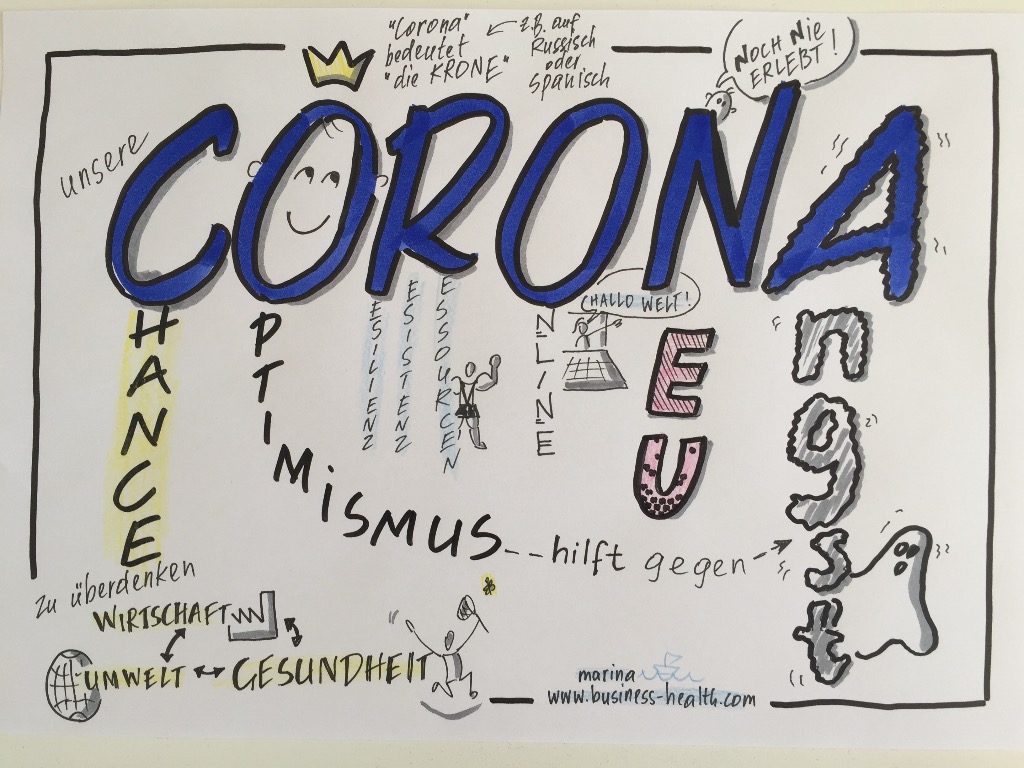 "Corona"
bedeutet
"die KRONE"
z.B. auf
Russisch
oder
Spanisch
NOCH NIE
ERLEBT!
unsere
CORONA
HANCE
PTIMISMUS
ESILIENZ
ESISTENZ
ESSOURCEN
NLINE
CHALLO WELT!
EU
ngst
--hilft gegen-->
zu überdenken
WIRTSCHAFT
UMWELT ↔ GESUNDHEIT
marina
www.business-health.com